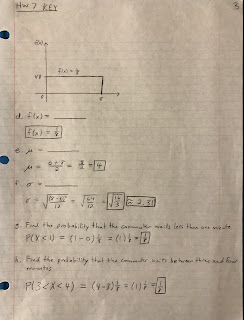 HW 7 KEY 3
f(x)
f(x) = 1/8
1/8
0 8
d. f(x) = ____
f(x) = 1/8
e. μ = ____
μ = (0+8)/2 = 8/2 = 4
f. σ = ____
σ = √((8-0)²/12) = √(64/12) = √(16/3) ≈ 2.31
g. Find the probability that the commuter waits less than one minute
P(X<1) = (1-0)1/8 = (1)1/8 = 1/8
h. Find the probability that the commuter waits between three and four
minutes
P(3<X<4) = (4-3)1/8 = (1)1/8 = 1/8